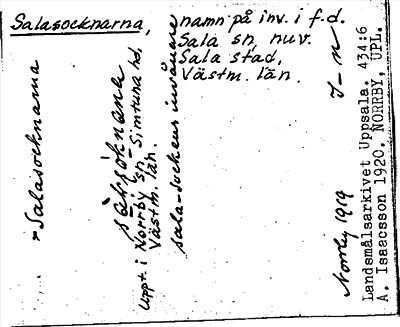 Salasocknarna, namn på inv. i f.d.
Sala sn, nuv.
Sala stad,
Västm. län.
Salasocknarna
Uppt. i Norrby sn - Simtuna hd,
Västm. län.
sala-sockens invånare
Norrby 1919
Landsmålsarkivet Uppsala. 434:6
A. Isaacsson 1920. NORRBY, UPL.